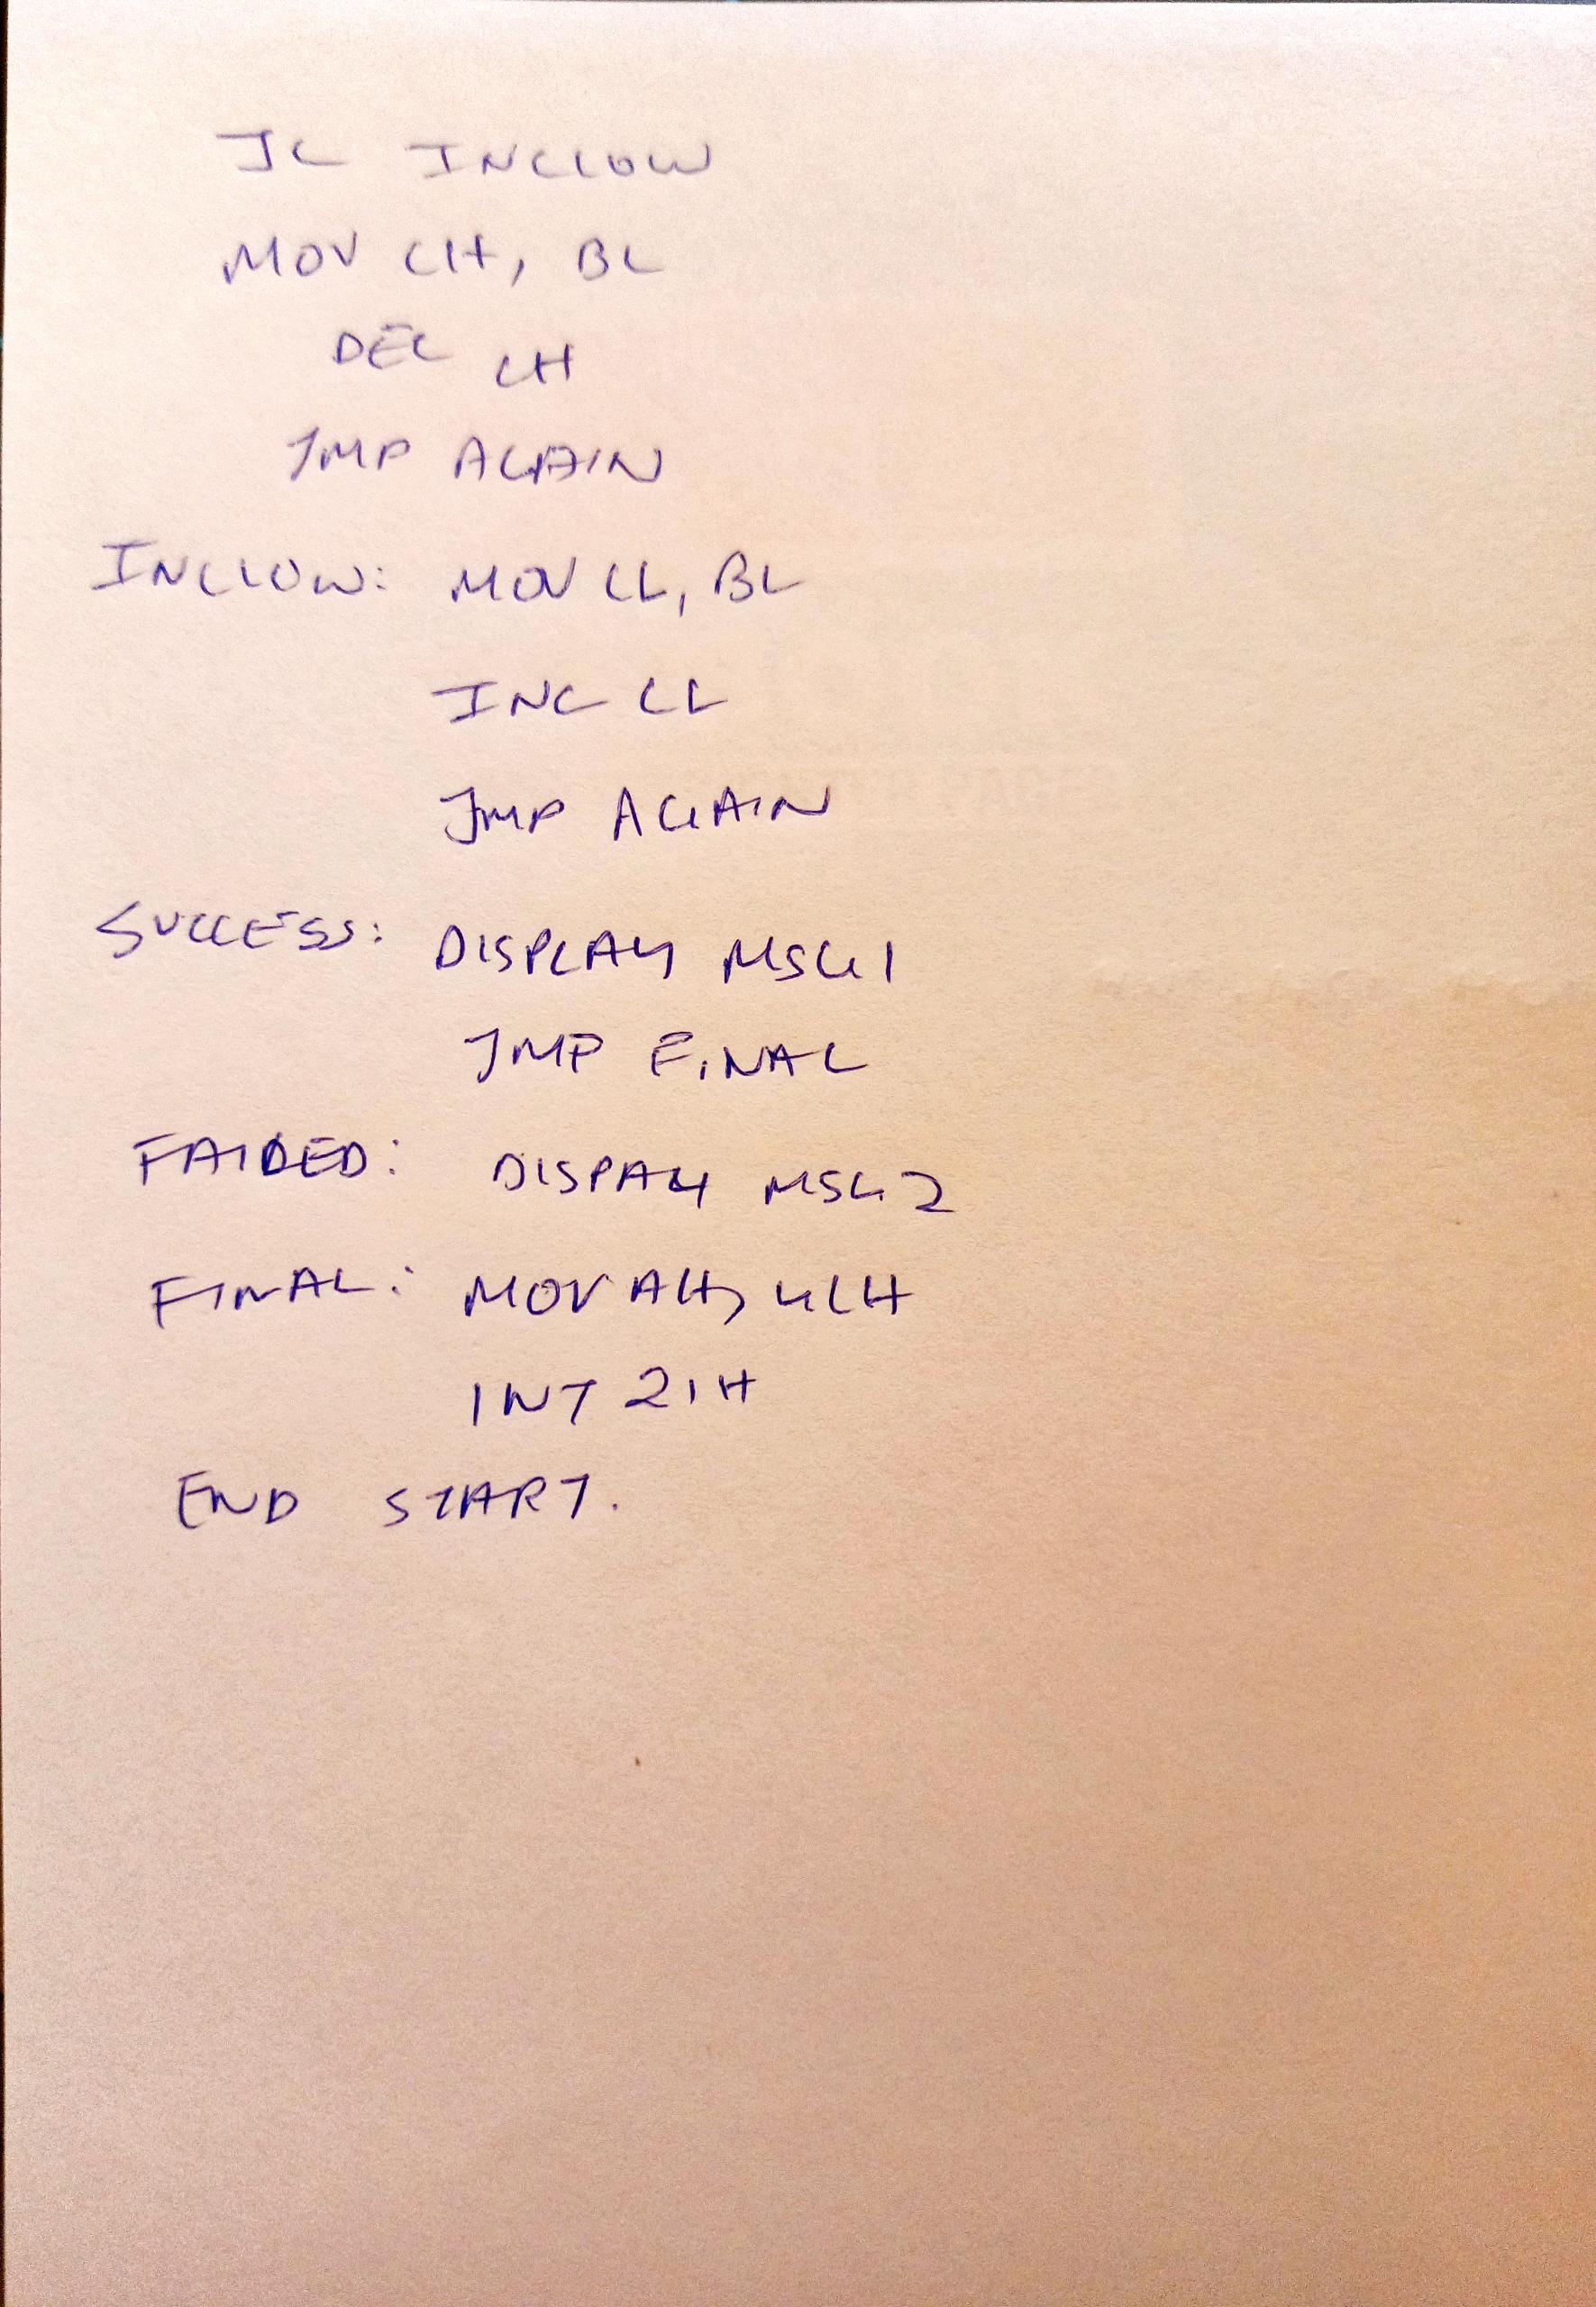 JC INCLOW
MOV CH, BL
DEC CH
JMP AGAIN
INCLOW: MOV CL, BL
INC CL
JMP AGAIN
SUCCESS: DISPLAY MSG1
JMP FINAL
FAIDED: DISPAY MSG2
FINAL: MOV AH, 4CH
INT 21H
END START.